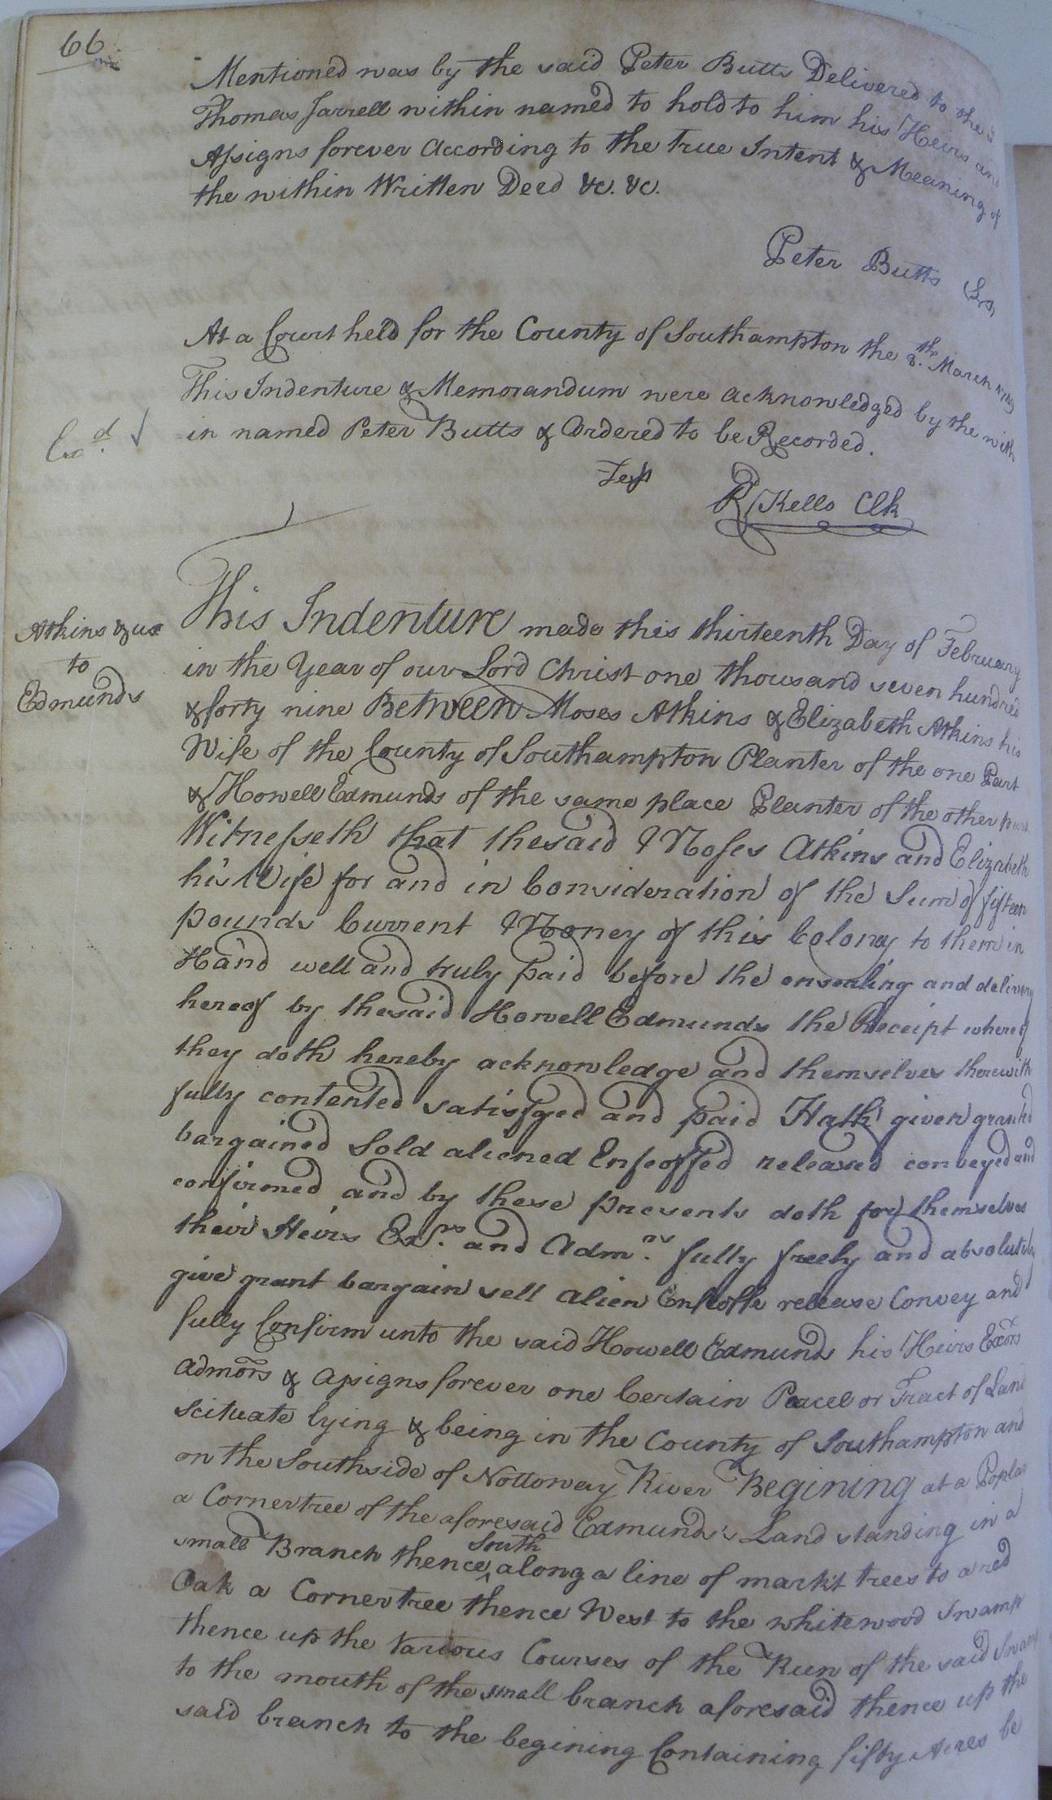 66
Mentioned was by the said Peter Butts Delivered to the
Thomas Jarrell within named to hold to him his Heirs and
Assigns forever according to the true Intent & Meaning of
the within Written Deed &c. &c.
Peter Butts
At a Court held for the County of Southampton the 8.th March
This Indenture & Memorandum were acknowledged by the with
in named Peter Butts & Ordered to be Recorded.
Exd.
Test
R Kello Clk
Atkins & ux
to
Edmunds
This Indenture made this thirteenth Day of February
in the Year of our Lord Christ one thousand seven hundred
& forty nine Between Moses Atkins & Elizabeth Atkins his
Wife of the County of Southampton Planter of the one Part
& Howell Edmunds of the same place Planter of the other part
Witnesseth that the said Moses Atkins and Elizabeth
his Wife for and in Consideration of the Sum of fifteen
pounds Current Money of this Colony to them in
Hand well and truly paid before the ensealing and delivery
hereof by the said Howell Edmunds the Receipt whereof
they doth hereby acknowledge and themselves therewith
fully contented satisfyed and paid Hath given granted
bargained Sold aliened Enfeoffed released conveyed and
confirmed and by these presents doth for themselves
their Heirs Exrs. and Admrs. fully freely and absolutely
give grant bargain sell alien Enfeoffe release Convey and
fully Confirm unto the said Howell Edmunds his Heirs Exors
admors & assigns forever one Certain Peacel or Tract of Land
scituate lying & being in the County of Southampton and
on the Southside of Nottoway River Begining at a Poplar
a Corner tree of the aforesaid Edmunds's Land standing in a
small Branch thence South along a line of markt trees to a red
Oak a Corner tree thence West to the whitewood Swamp
thence up the Various Courses of the Run of the said Swamp
to the mouth of the small branch aforesaid thence up the
said branch to the begining Containing fifty Acres be